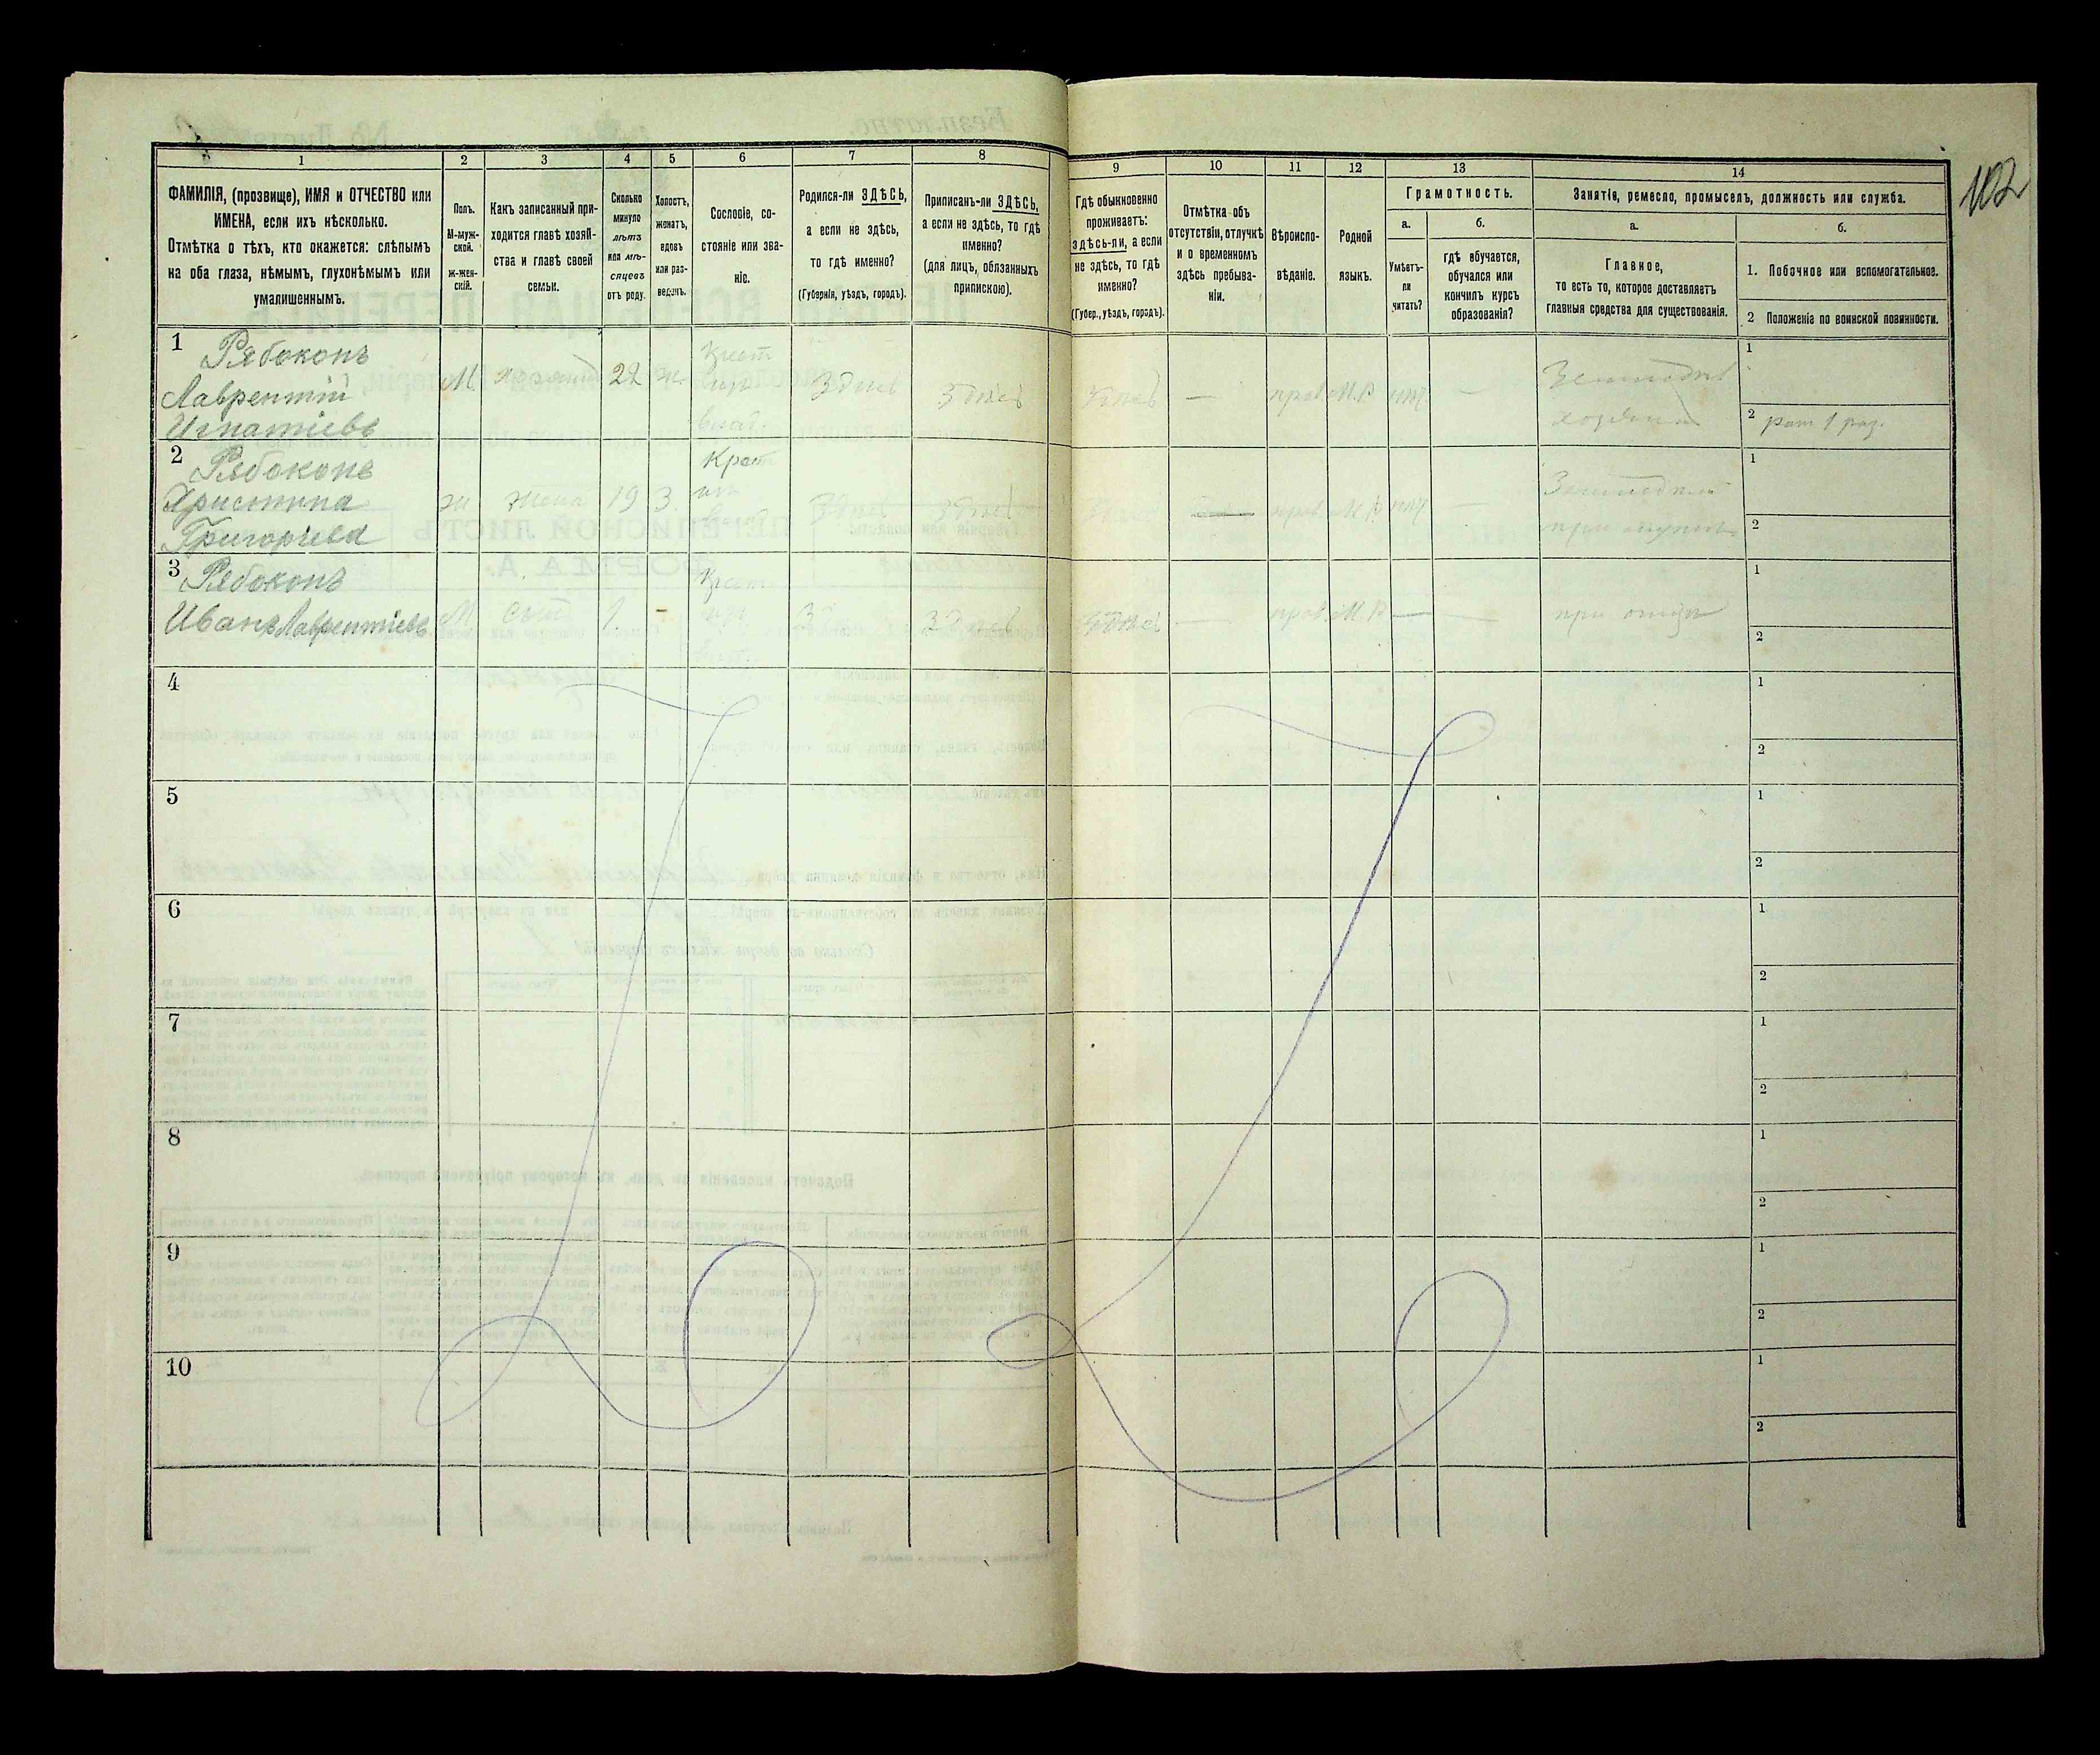 102
1 2 3 4 5 6 7 8 9 10 11 12 13 14
ФАМИЛІЯ, (прозвище), ИМЯ и ОТЧЕСТВО или
ИМЕНА, если ихъ нѣсколько.
Отмѣтка о тѣхъ, кто окажется: слѣпымъ
на оба глаза, нѣмымъ, глухонѣмымъ или
умалишеннымъ.
Полъ.
М-муж-
ской.
Ж-жен-
скій.
Какъ записанный при-
ходится главѣ хозяй-
ства и главѣ своей
семьи.
Сколько
минуло
лѣтъ
или мѣ-
сяцевъ
отъ роду.
Холостъ,
женатъ,
вдовъ
или раз-
веденъ.
Сословіе, со-
стояніе или зва-
ніе.
Родился-ли ЗДѢСЬ,
а если не здѣсь,
то гдѣ именно?
(Губернія, уѣздъ, городъ).
Приписанъ-ли ЗДѢСЬ,
а если не здѣсь, то гдѣ
именно?
(для лицъ, обязанныхъ
припискою).
Гдѣ обыкновенно
проживаетъ:
здѣсь-ли, а если
не здѣсь, то гдѣ
именно?
(Губер., уѣздъ, городъ).
Отмѣтка объ
отсутствіи, отлучкѣ
и о временномъ
здѣсь пребыва-
ніи.
Вѣроиспо-
вѣданіе.
Родной
языкъ.
Грамотность.
а.
Умѣетъ-
ли
читать?
б.
гдѣ обучается,
обучался или
кончилъ курсъ
образованія?
Занятія, ремесло, промыселъ, должность или служба.
а.
Главное,
то есть то, которое доставляетъ
главныя средства для существованія.
б.
1. Побочное или вспомогательное.
2 Положеніе по воинской повинности.
1 Рябоконь
Лаврентій
Игнатіевъ
М. 22 ж. Крест
Здѣсь Здѣсь Здѣсь — прав. М.Р. нѣт —
хозяинъ
1
2 рат 1 раз.
2 Рябоконь
Христина
Григоріева
ж жена 19 з. Крест
Здѣсь Здѣсь Здѣсь — прав. М.Р. нѣт —
при мужѣ
1
2
3 Рябоконь
Иванъ Лаврентіевъ
М сынъ 1. - Крест
Здѣсь Здѣсь — прав. М.Р. — —
при отцѣ
1
2
4
1
2
5
1
2
6
1
2
7
1
2
8
1
2
9
1
2
10
1
2